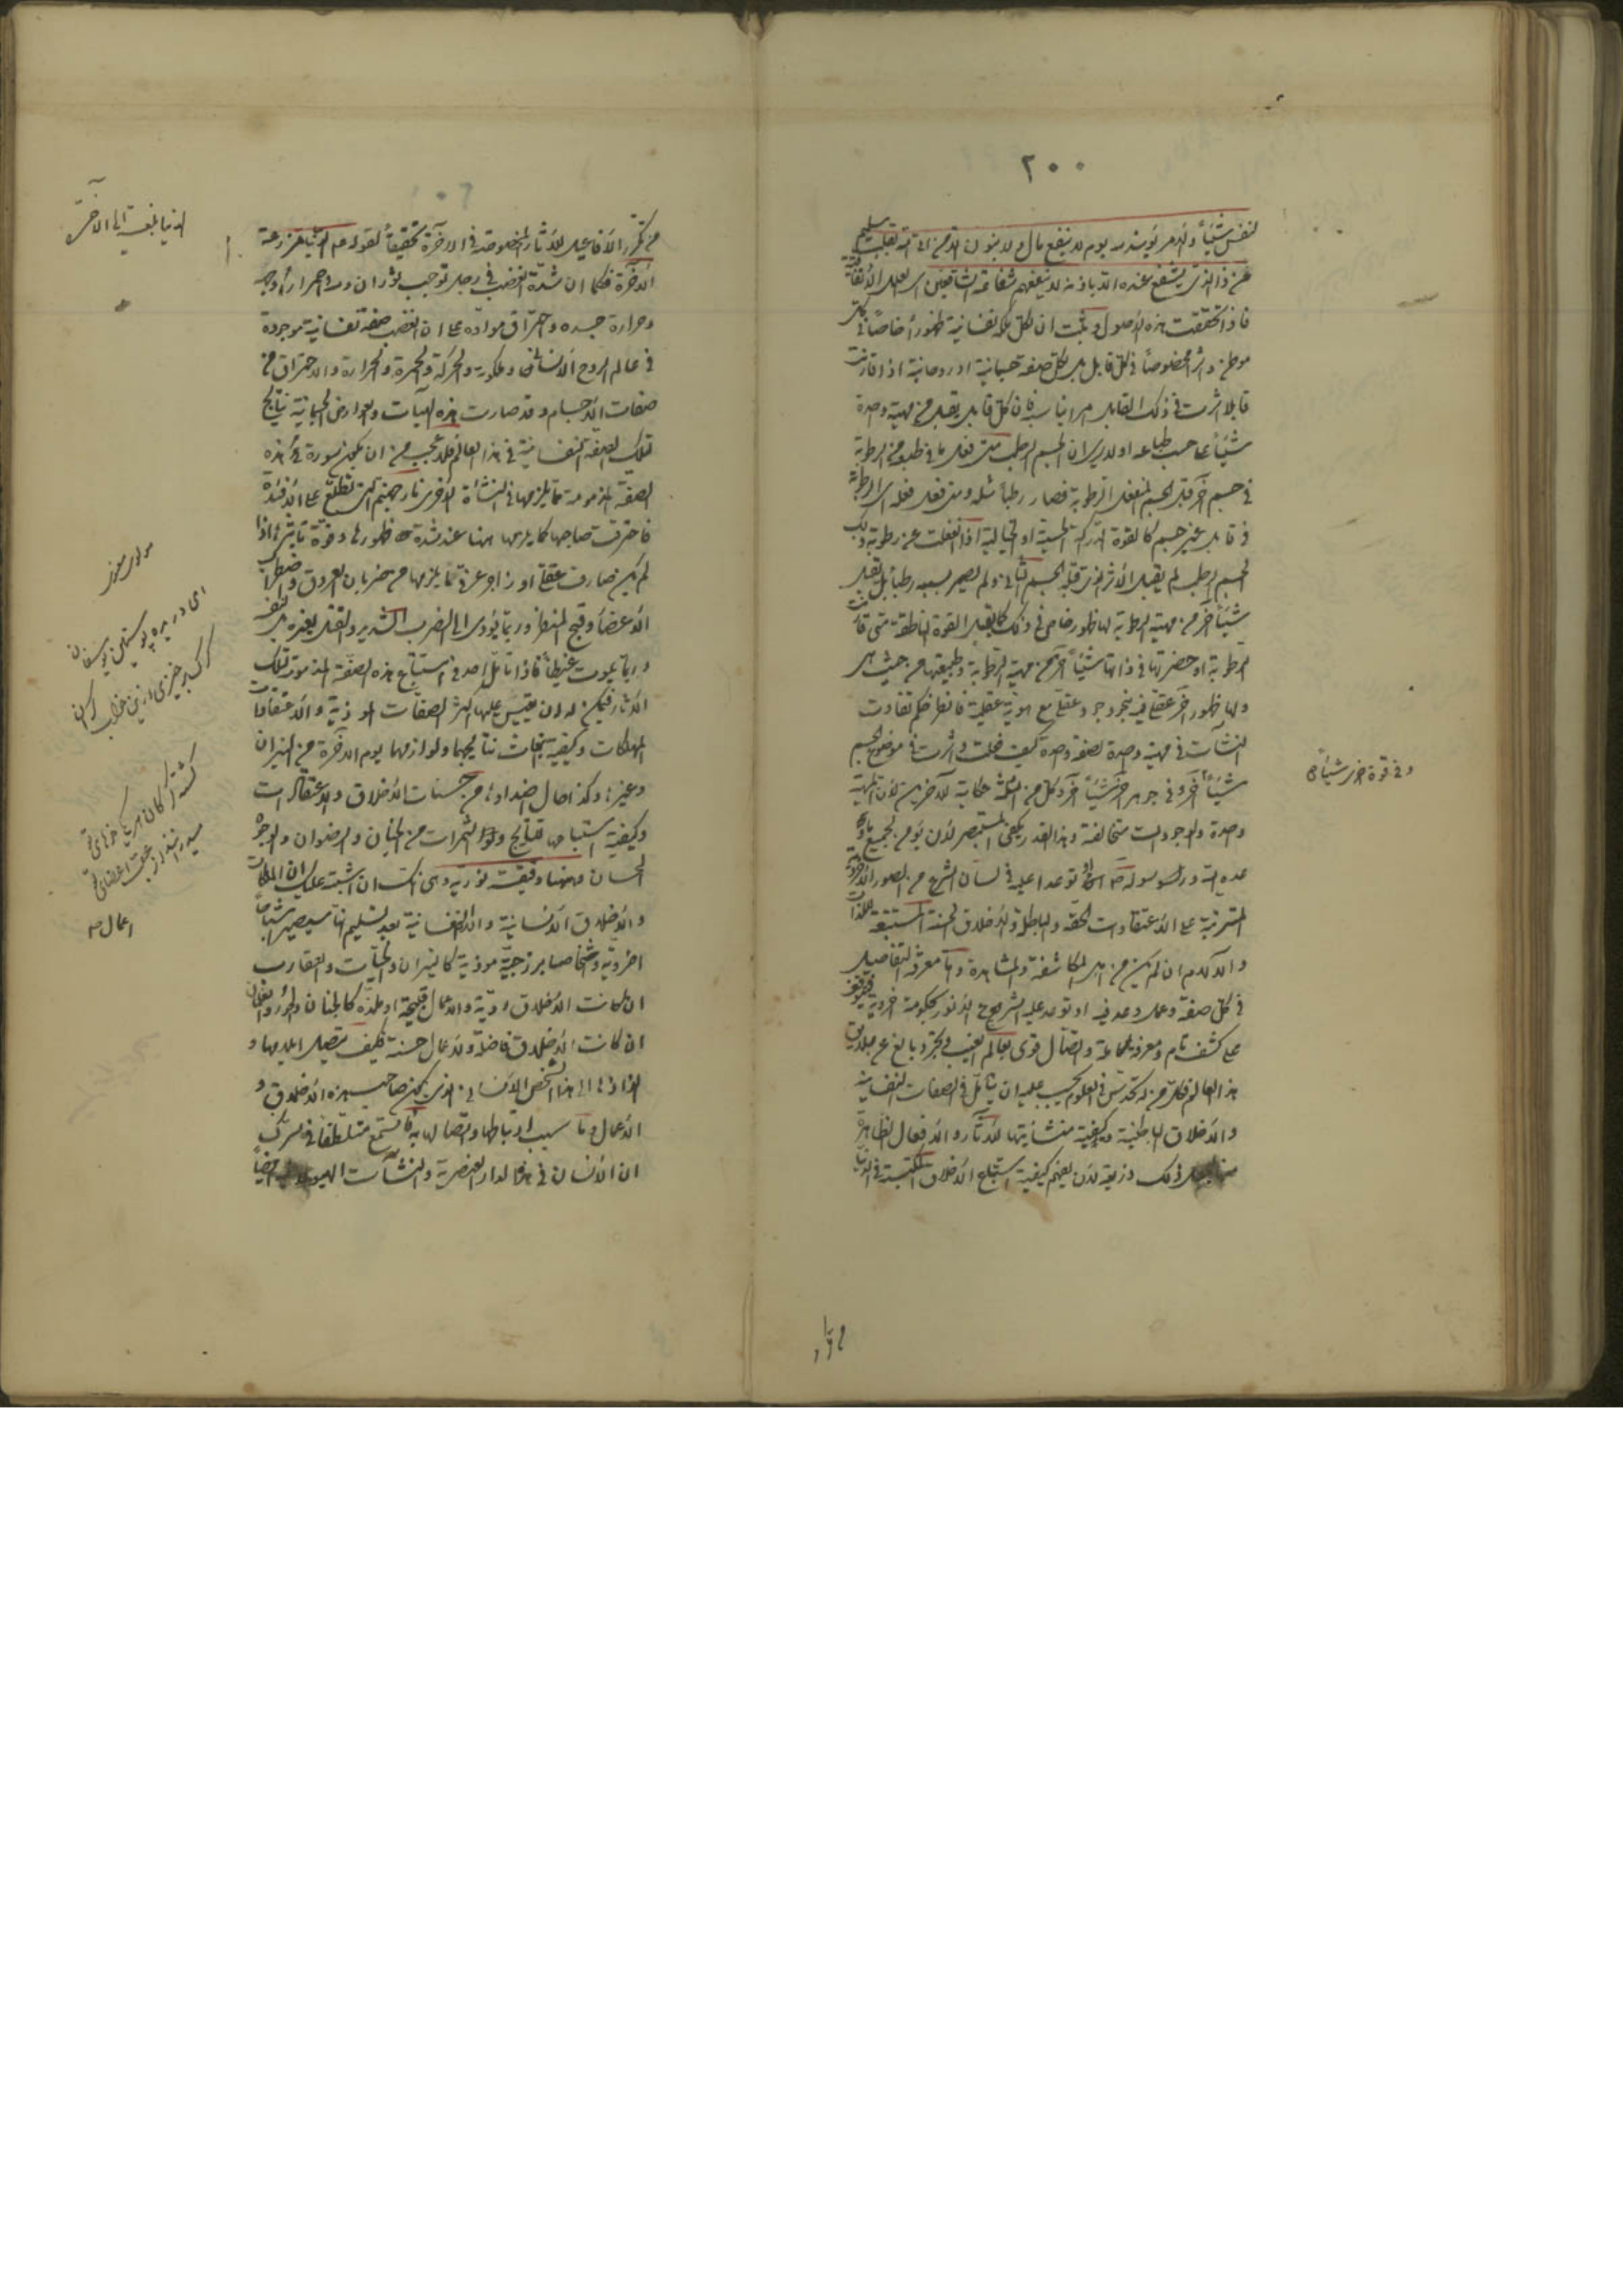 ٢٠٠
لنفس شيئاً والامر يومئذ لله يوم لا ينفع مال ولا بنون الا من اتى الله بقلب سليم
من ذا الذي يشفع عنده الا باذنه لا ينفعهم شفاعة الشافعين
فاذا تحققت هذه الاصول وثبت ان لكل ملكة نفسانية ظهوراً خاصاً في كل
موطن واثراً مخصوصاً في كل قابل بل لكل صفة جسمانية او روحانية اذا قارنت
قابلا اثرت في ذلك القابل فان كل قابل يقبل من مهية واحدة
شيئاً على حسب طباعه اولا يرى ان الجسم الرطب متى فعل ما في طبعه من الرطوبة
في جسم آخر قبل الجسم المنفعل الرطوبة فصار رطباً مثله ومتى فعل فعله الرطوبة
في قابل غير جسم كالقوة الدراكة الحسية او الخيالية اذا انفعلت عن رطوبة ذلك
الجسم الرطب لم يقبل الاثر الذي قبله الجسم الثاني ولم يصر بسببه رطباً بل يقبل
شيئاً آخر من مهية الرطوبة لها ظهور خاص في ذلك كما يقبل القوة الناطقة متى قارنت
الرطوبة او حضرتها في ذاتها شيئاً آخر من مهية الرطوبة وطبيعتها من حيث هي
ولها ظهور آخر عقلي فيه بنحو وجود عقلي مع هوية عقلية فانظر حكم تفاوت
النشآت في مهية واحدة لصفة واحدة كيف فعلت واثرت في موضوع الجسم
شيئاً آخر وفي جوهر آخر شيئاً آخر وكل من الثلثة حكاية للآخرين لان المهية
وفي قوة اخرى شيئاً
واحدة والوجودات متخالفة وهذا القدر يكفي للمستبصر لان يؤمن بجميع ما
وعده الله ورسوله او توعدا عليه في لسان الشرع من الصور الاخروية
المترتبة على الاعتقادات الحقة والباطلة والاخلاق الحسنة المستتبعة للذات
والآلام ان لم يكن من اهل المكاشفة والمشاهدة واما معرفة التفاصيل
في كل صفة وعمل وعد فيه او توعد عليه الشرع
على كشف تام ومعرفة كاملة واتصال قوي بعالم الغيب وتجرد بالغ عن علايق
هذا العالم فكل من له تحدس في العلوم يجب عليه ان يتأمل في الصفات النفسانية
والاخلاق الباطنية وكيفية منشأيتها للآثار والافعال الظاهرة
منها ليجعل ذلك ذريعة لان يفهم كيفية استتباع الاخلاق المكتسبة في الدنيا
من تكرر الافاعيل للآثار المخصوصة في الآخرة تحقيقاً لقوله عم الدنيا مزرعة
الدنيا بالنسبة الى الآخرة
الآخرة فكما ان شدة الغضب في رجل توجب ثوران دمه واحمرار وجهه
وحرارة جسده واحتراق مواده على ان الغضب صفة نفسانية موجودة
في عالم الروح الانساني وملكوته والحركة والحمرة والحرارة والاحتراق من
صفات الاجسام وقد صارت هذه الهيآت والعوارض الجسمانية نتايج
تلك الصفة النفسانية في هذا العالم فلا عجب من ان يكون سورة هذه
الصفة المذمومة مما يلزمها في النشأة الاخرى نار جهنم التي تطلع على الافئدة
فاحترقت صاحبها كما يلزمها ههنا عند شدة ظهورها وقوة تأثيرها اذا
لم يكن صارف عقلي او زاجر عرفي ما يلزمها من ضربان العروق واضطراب
الاعضاء وقبح المنظر وربما يؤدي الى الضرب الشديد والقتل لغيره بل لنفسه
وربما يموت غيظاً فاذا تأمل احد في استتباع هذه الصفة المذمومة لتلك
الآثار فيمكن له ان يقيس عليها اكثر الصفات الموذية والاعتقادات
المهلكات وكيفية نتايجها ولوازمها يوم الآخرة من النيران
وغيرها وكذا حال اضدادها من حسنات الاخلاق والاعتقادات
وكيفية استنباط النتايج والثمرات من الجنان والرضوان والوجوه
الحسان وههنا دقيقة نورية وهي انك ان اشتبه عليك ان الملكات
والاخلاق الانسانية والنفسانية بعد تسليم انها سيصير اشباحاً
اخروية واشخاصا برزخية موذية كالنيران والحيات والعقارب
ان كانت الاخلاق ردية والاعمال قبيحة او ملذة كالجنان والحور والغلمان
ان كانت الاخلاق فاضلة والاعمال حسنة فكيف يتصل ايلامها و
الذاذها الى هذا الشخص الانساني الذي يكون صاحب هذه الاخلاق و
الاعمال وما سبب ارتباطها واتصالها به فاستمع متلطفا في سرك
ان الانسان في هذه الدار العنصرية والنشآت
مولوى معنوى
اى دريده پوستين يوسفان
گرگ برخيزى ازين خواب گران
گشته گرگان هر يك خوهاى تو
ميدرانند از غضب اعضاى تو